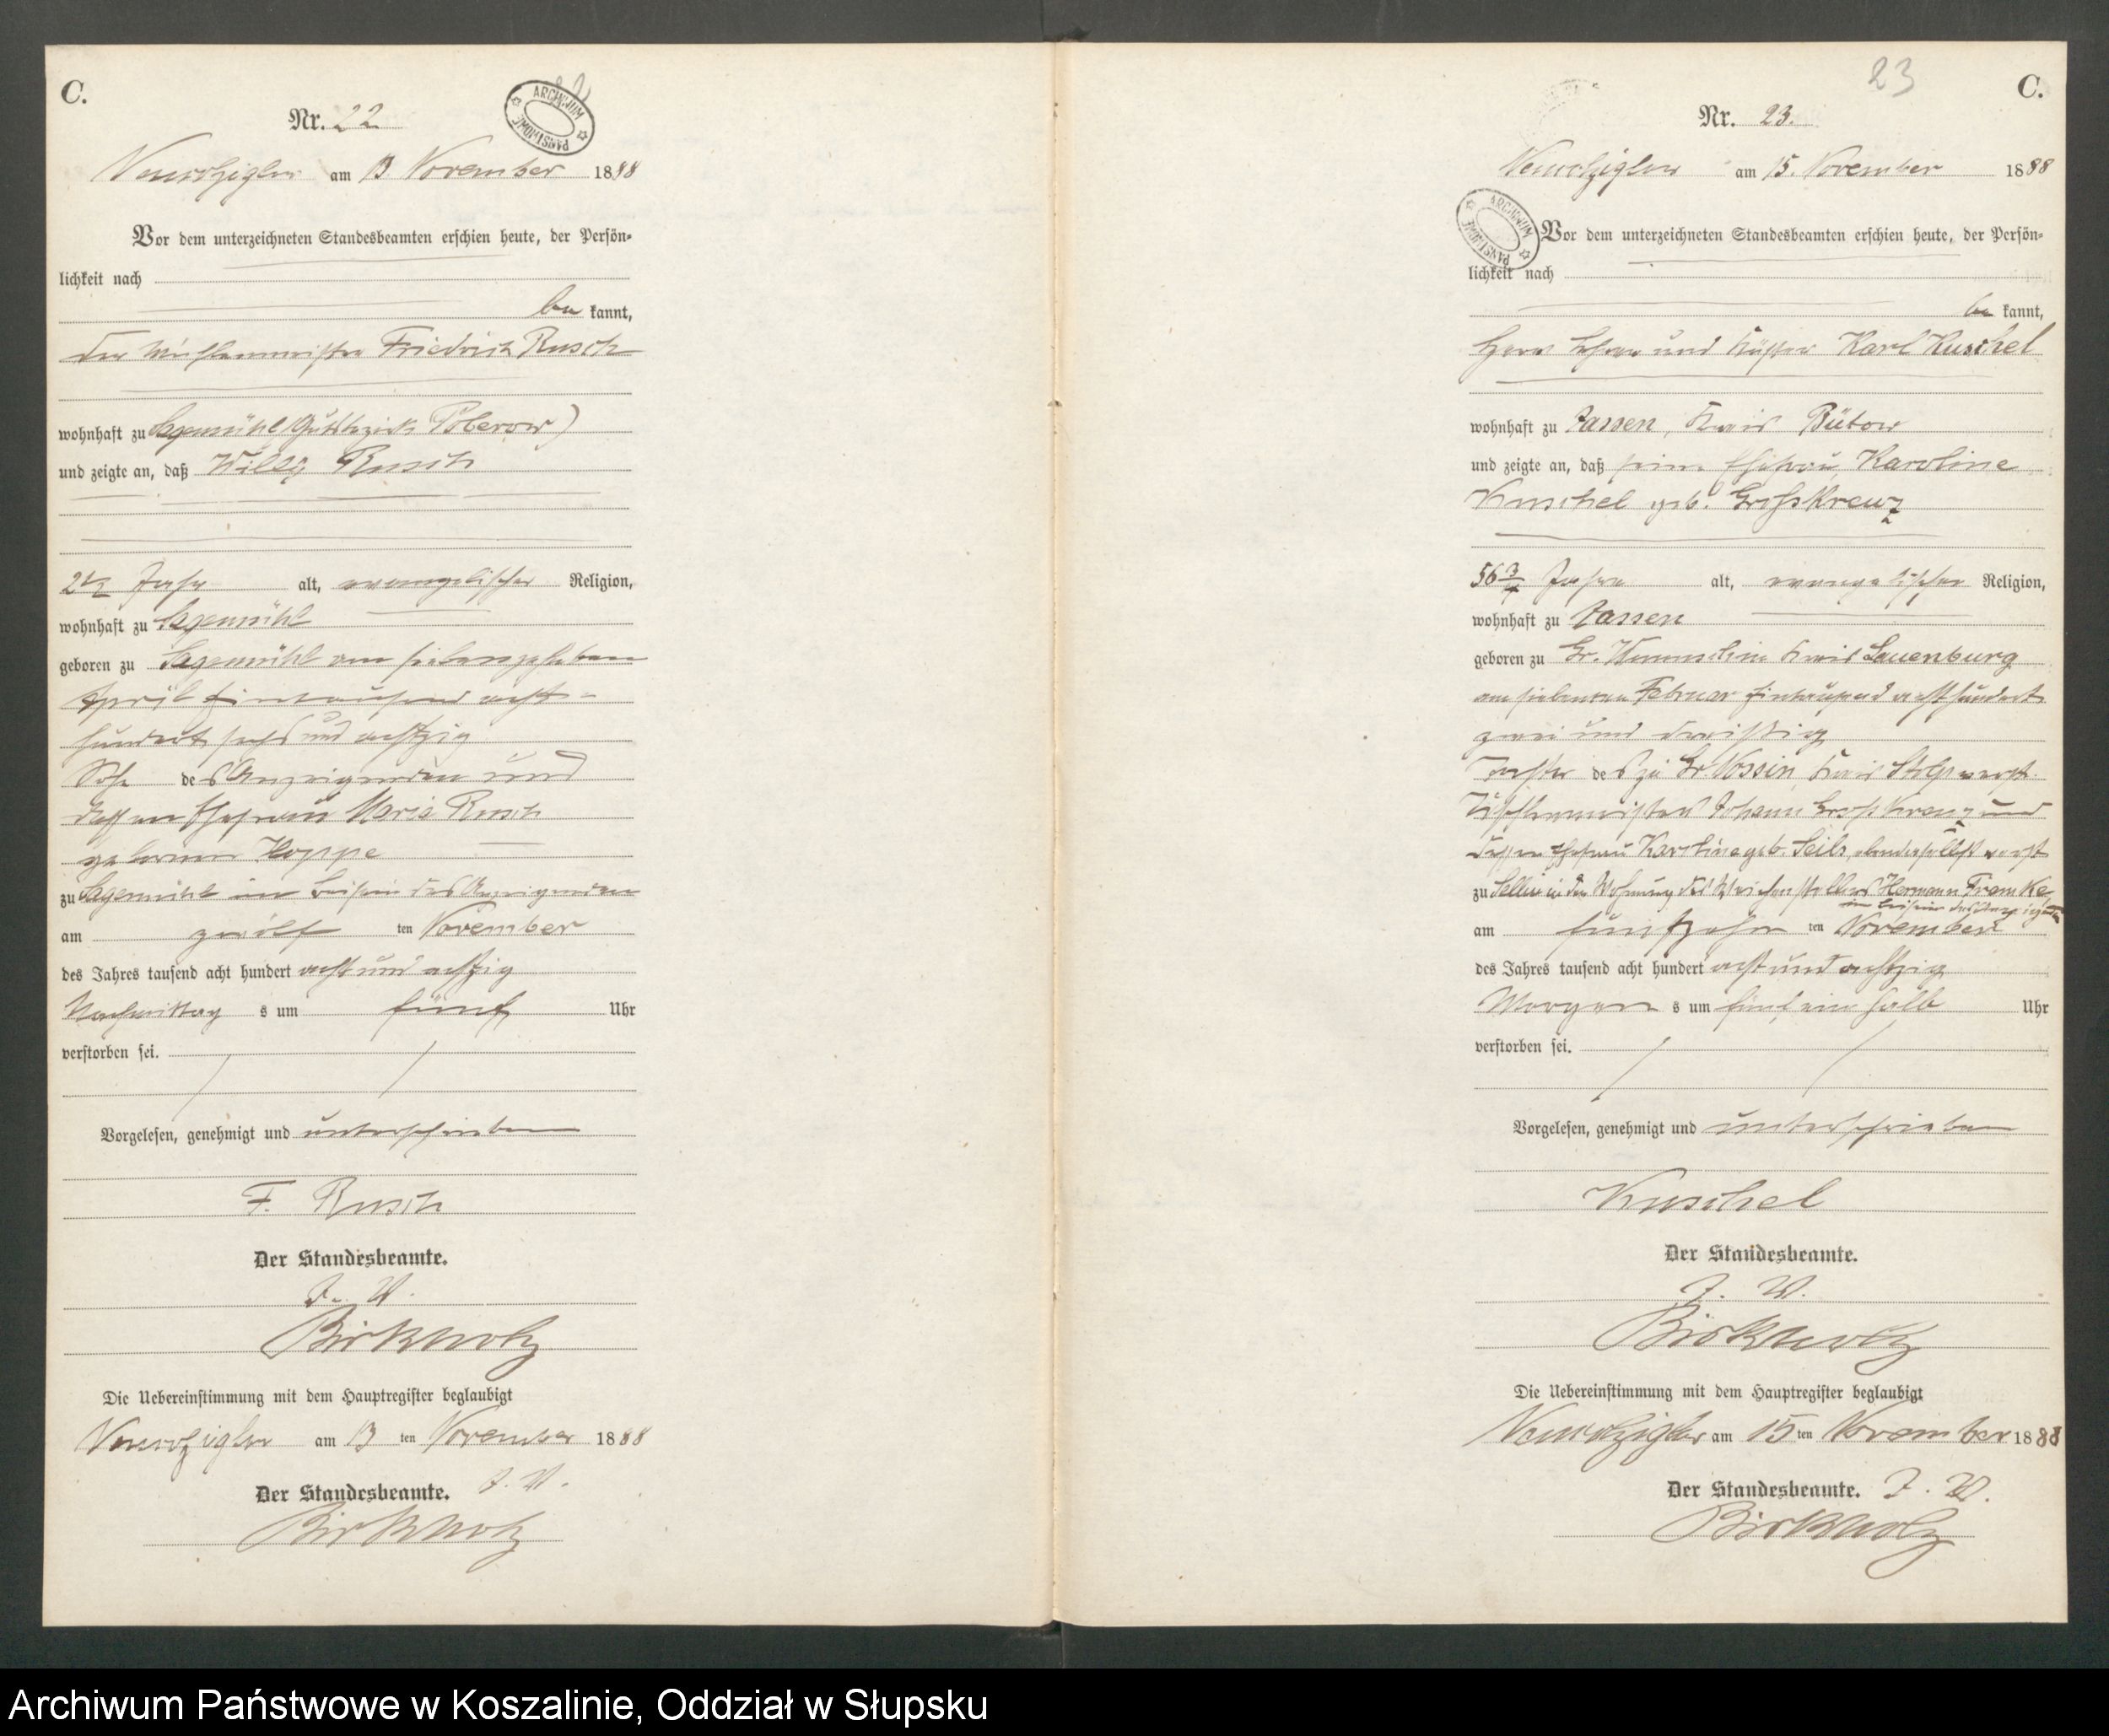 C.
Nr. 22
ARCHIWUM PAŃSTWOWE
am 13 November 1888
Vor dem unterzeichneten Standesbeamten erschien heute, der Persön-
lichkeit nach
be kannt,
der Mühlenmeister Friedrich Rusch
wohnhaft zu Sagemühl (Gutsbezirk Poberow)
und zeigte an, daß Willy Rusch
2 1/2 Jahr alt, evangelischer Religion,
wohnhaft zu Sagemühl
geboren zu Sagemühl am siebenzehnten
April Eintausend acht-
hundert sechs und achtzig
Sohn des Anzeigenden und
dessen Ehefrau Maria Rusch
geborenen Hoppe
zu Sagemühl im Beisein des Anzeigenden
am zwölf ten November
des Jahres tausend acht hundert acht und achtzig
Nachmittag s um fünf Uhr
verstorben sei.
Vorgelesen, genehmigt und unterschrieben
F. Rusch
Der Standesbeamte.
J. V.
Birkholz
Die Uebereinstimmung mit dem Hauptregister beglaubigt
am 13 ten November 1888
Der Standesbeamte. J. V.
Birkholz
23
C.
Nr. 23.
ARCHIWUM PAŃSTWOWE
am 15. November 1888
Vor dem unterzeichneten Standesbeamten erschien heute, der Persön-
lichkeit nach
be kannt,
Herr Lehrer und Küster Karl Kuschel
wohnhaft zu Jassen, Kreis Bütow
und zeigte an, daß seine Ehefrau Karoline
Kuschel geb. Großkreuz
56 3/4 Jahre alt, evangelischer Religion,
wohnhaft zu Jassen
geboren zu Gr. Kreis Lauenburg
am siebenten Februar Eintausend achthundert
zwei und dreißig
Tochter des zu Gr. Nossin, Kreis Stolp verst.
Tischlermeisters Johann Großkreuz und
dessen Ehefrau Karoline geb. Seils, ebendaselbst verst
zu Sellin in der Wohnung des Weichenstellers Hermann Framke,
im Beisein des Anzeigenden
am fünfzehn ten November
des Jahres tausend acht hundert acht und achtzig
Morgen s um fünf ein halb Uhr
verstorben sei.
Vorgelesen, genehmigt und unterschrieben
Kuschel
Der Standesbeamte.
J. V.
Birkholz
Die Uebereinstimmung mit dem Hauptregister beglaubigt
am 15 ten November 1888
Der Standesbeamte. J. V.
Birkholz
Archiwum Państwowe w Koszalinie, Oddział w Słupsku